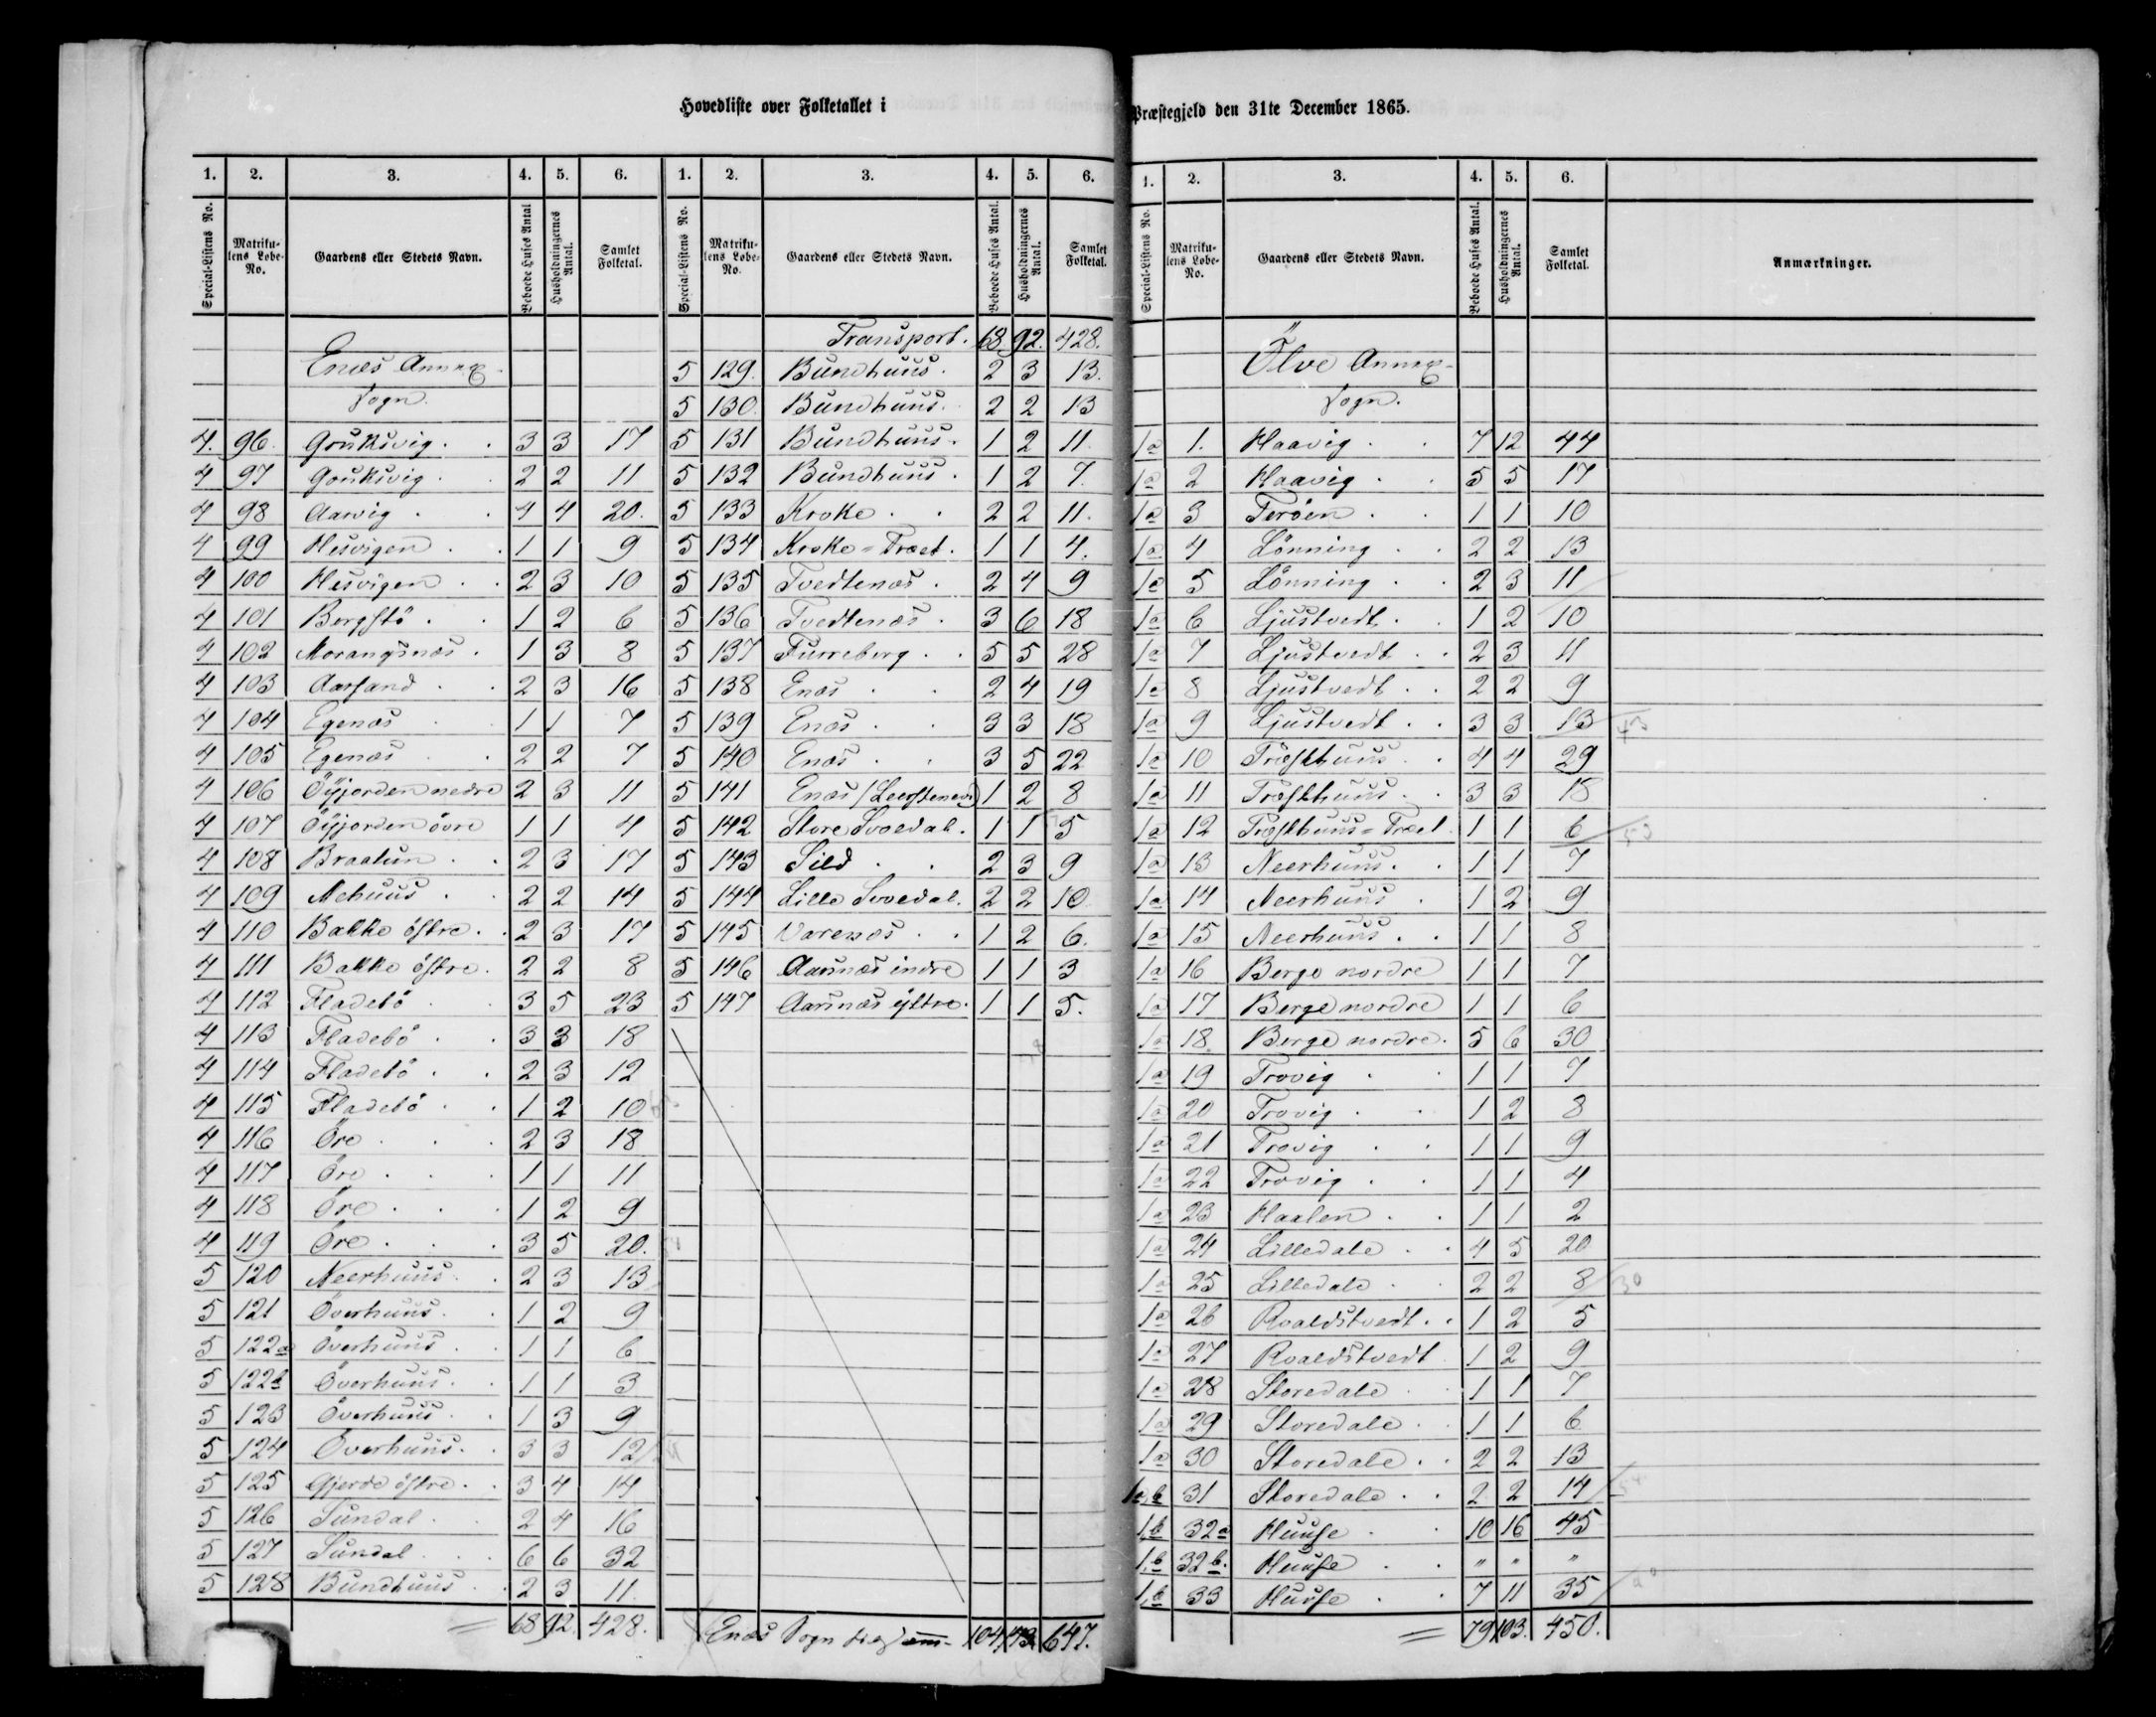 Hovedliste over Folketallet i Præstegjeld den 31te December 1865.
1. 2. 3. 4. 5. 6.
Special-Listens No. Matrikulens Løbe-No. Gaardens eller Stedets Navn. Beboede Huses Antal Husholdningernes Antal. Samlet Folketal.
Enæs Annex-
Sogn.
4. 96. Gouksvig . . 3 3 17
4 97 Gouksvig . . 2 2 11
4 98 Aarvig . . 4 4 20.
4 99 Hesvigen . . 1 1 9
4 100 Hesvigen . . 2 3 10
4 101 Bergstö . . 1 2 6
4 102 Morangsnæs . 1 3 8
4 103 Aarsand . . 2 3 16
4 104 Egenæs . 1 1 7
4 105 Egenæs . . 2 2 7
4 106 Öyjorden nedre 2 3 11
4 107 Öyjorden övre 1 1 4
4 108 Braatun . . 2 3 17
4 109 Mehuus . . 2 2 14
4 110 Bakke östre . . 2 3 17
4 111 Bakke östre . 2 2 8
4 112 Fladebö . . 3 5 23
4 113 Fladebö . . 3 3 18
4 114 Fladebö . . 2 3 12
4 115 Fladebö . . 1 2 10
4 116 Öre . . . 2 3 18
4 117 Öre . . . 1 1 11
4 118 Öre . . . 1 2 9
4 119 Öre . . . 3 5 20.
5 120 Neerhuus . . 2 3 13
5 121 Överhuus . . 1 2 9
5 122a Överhuus . . 1 1 6
5 122b Överhuus . . 1 1 3
5 123 Överhuus . . 1 3 9
5 124 Överhuus . . 3 3 12
5 125 Gjerde östre . . 3 4 14
5 126 Sundal . . 2 4 16
5 127 Sundal . . . 6 6 32
5 128 Bundhuus . . 2 3 11.
68 92. 428.
1. 2. 3. 4. 5. 6.
Special-Listens No. Matrikulens Løbe-No. Gaardens eller Stedets Navn. Beboede Huses Antal. Husholdningernes Antal. Samlet Folketal.
Transport. 68 92. 428.
5 129. Bundhuus . 2 3 13.
5 130. Bundhuus . 2 2 13
5 131 Bundhuus . 1 2 11.
5 132 Bundhuus . 1 2 7.
5 133 Kroke . . 2 2 11.
5 134 Kroke-Træet . 1 1 4.
5 135 Tvedtenæs . 2 4 9
5 136 Tvedtenæs . 3 6 18
5 137 Furreberg . . 5 5 28
5 138 Enæs . . 2 4 19
5 139 Enæs . . 3 3 18
5 140 Enæs . . 3 5 22
5 141 1 2 8
5 142 Store Svoedal . 1 1 5
5 143 Sild . . 2 3 9
5 144 Lille Svoedal . 2 2 10
5 145 Varenæs . . 1 2 6.
5 146 Aarsnæs indre 1 1 3
5 147 Aarsnæs ÿttre . 1 1 5.
Enæs Sogn 104 143 647.
1. 2. 3. 4. 5. 6.
Special-Listens No. Matrikulens Løbe-No. Gaardens eller Stedets Navn. Beboede Huses Antal. Husholdningernes Antal. Samlet Folketal. Anmærkninger.
Ölve Annex-
Sogn.
1a 1. Haavig . . 7 12 44
1a 2 Haavig . . 5 5 17
1a 3 Teröen . . 1 1 10
1a 4 Lönning . . 2 2 13
1a 5 Lönning . . 2 3 11
1a 6 Ljustvedt . . 1 2 10
1a 7 Ljustvedt . . 2 3 11
1a 8 Ljustvedt . . 2 2 9
1a 9 Ljustvedt . . 3 3 13 43
1a 10 Træsthuus . . 4 4 29
1a 11 Træsthuus . . 3 3 18
1a 12 Træsthuus-Træet . 1 1 6 53
1a 13 Neerhuus . . 1 1 7
1a 14 Neerhuus . 1 2 9
1a 15 Neerhuus . . 1 1 8
1a 16 Berge nordre 1 1 7
1a 17 Berge nordre 1 1 6
1a 18. Berge nordre . 5 6 30
1a 19 Trovig . . 1 1 7
1a 20 Trovig . . 1 2 8
1a 21 Trovig . . 1 1 9
1a 22 Trovig . . 1 1 4
1a 23 Haalen . . 1 1 2
1a 24 Lilledale . . 4 5 20
1a 25 Lilledale . . 2 2 8 30
1a 26 Roaldstvedt . . 1 2 5
1a 27 Roaldstvedt 1 2 9
1a 28 Storedale . . 1 1 7
1a 29 Storedale . . 1 1 6
1a 30 Storedale . . 2 2 13
1a,b 31 Storedale . . 2 2 14 54
1,b 32a Huuse . . 10 16 45
1,b 32b. Huuse . . " " "
1,b 33 Huuse . . 7 11 35
79 103. 450.